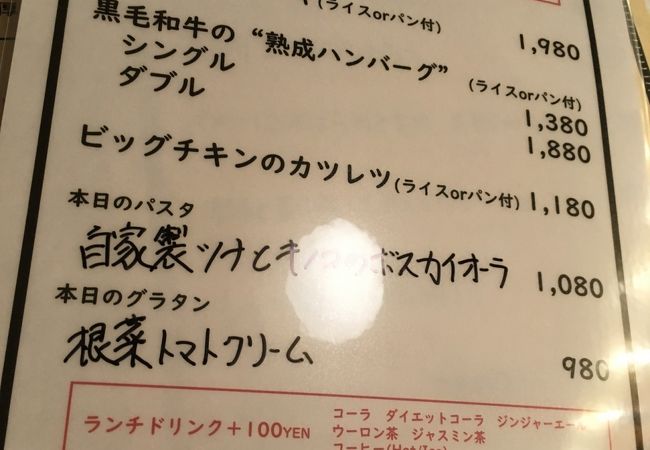 (ライスorパン付) 1,980
黒毛和牛の“熟成ハンバーグ” (ライスorパン付)
シングル 1,380
ダブル 1,880
ビッグチキンのカツレツ(ライスorパン付) 1,180
本日のパスタ
自家製ツナとキノコのボスカイオーラ 1,080
本日のグラタン
根菜トマトクリーム 980
ランチドリンク+100YEN
コーラ ダイエットコーラ ジンジャーエール
ウーロン茶 ジャスミン茶
コーヒー(Hot/Ice)